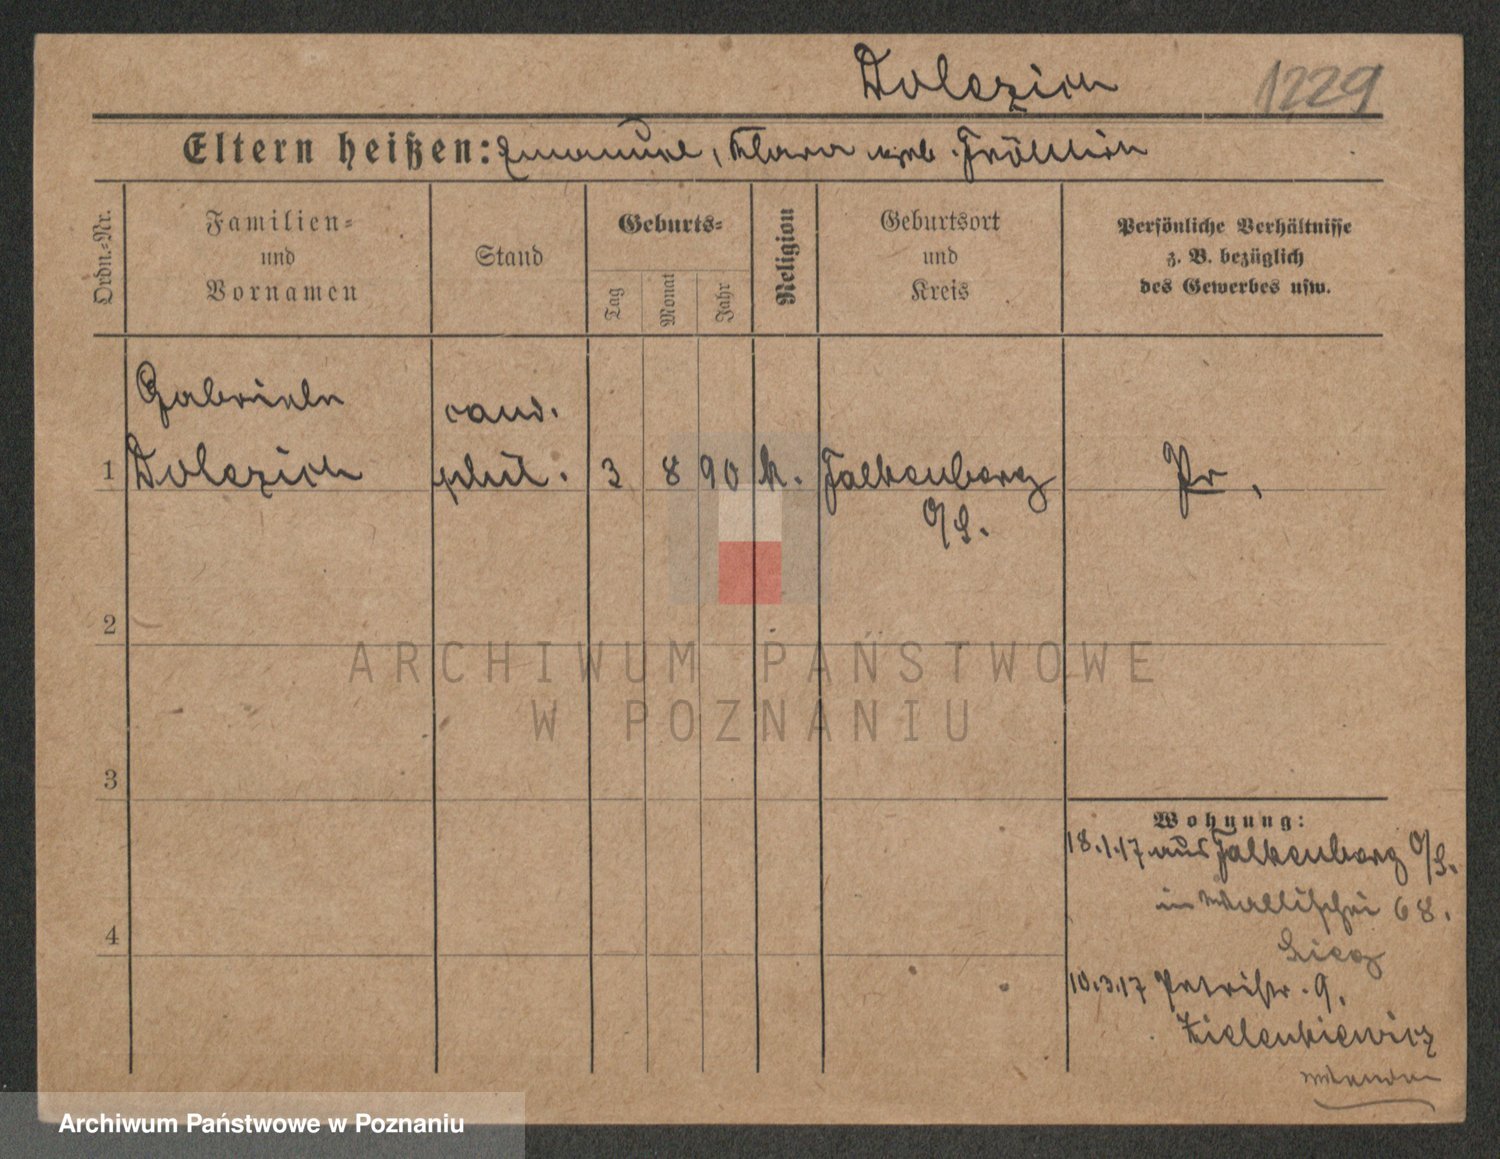 Dolezich 1229
Eltern heißen: Emanuel, Klara geb. Fröhlich
Ordn.-Nr.
Familien-
und
Vornamen
Stand
Geburts-
Tag
Monat
Jahr
Religion
Geburtsort
und
Kreis
Persönliche Verhältnisse
z. B. bezüglich
des Gewerbes usw.
Gabriele cand.
1 Dolezich phil. 3 8 90 k. Falkenberg Pr.
O/S.
2
ARCHIWUM PAŃSTWOWE
W POZNANIU
3
Wohnung:
18.1.17 aus Falkenberg O/S.
in Wallischei 68.
4
10.3.17 Petristr. 9.
Zielenkiewicz
Archiwum Państwowe w Poznaniu